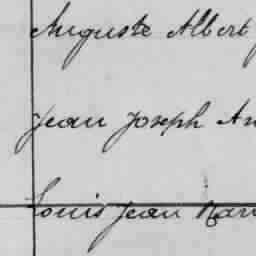 Auguste Albert
Jean Joseph An
Louis Jean Nar